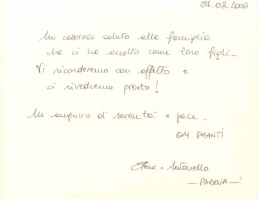 07.08.2006
Un caloroso saluto alla famiglia
che ci ha accolto come loro figli-
Vi ricorderemo con affetto e
ci rivedremo presto!
Un augurio di serenità e pace-
OM SHANTI
Elena e Antonello
- PADOVA -